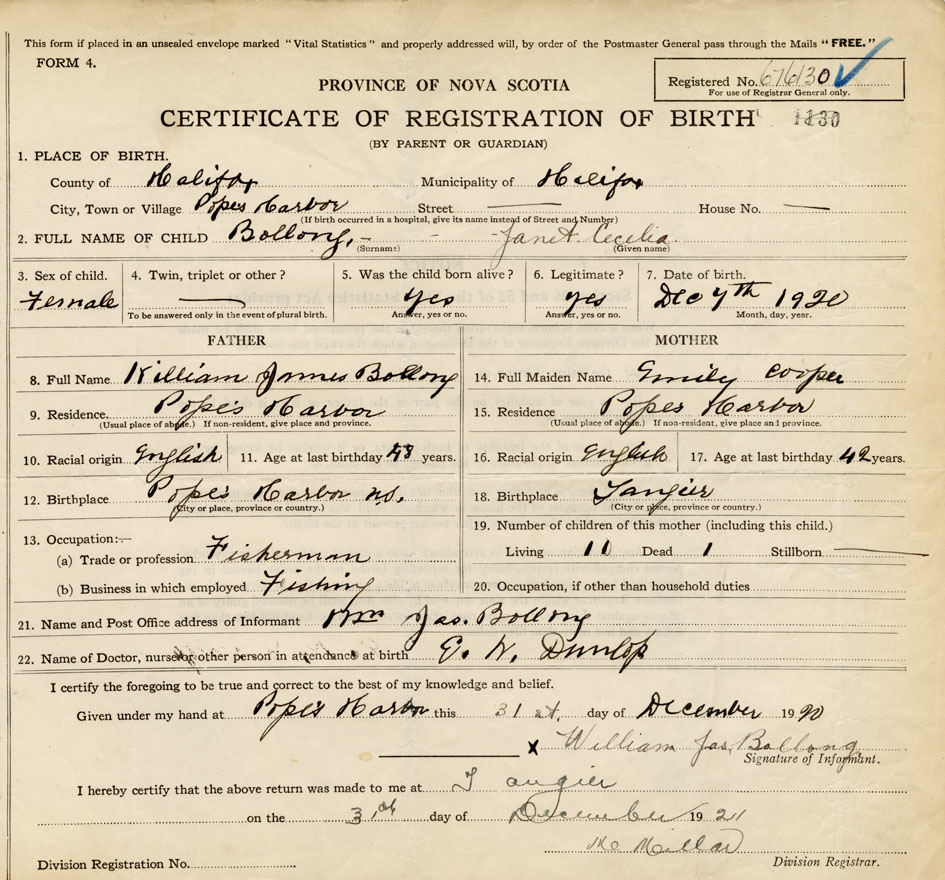 This form if placed in an unsealed envelope marked "Vital Statistics" and properly addressed will, by order of the Postmaster General pass through the Mails "FREE."
FORM 4.
Registered No. 676130
For use of Registrar General only.
PROVINCE OF NOVA SCOTIA
CERTIFICATE OF REGISTRATION OF BIRTH 1130
(BY PARENT OR GUARDIAN)
1. PLACE OF BIRTH.
County of Halifax Municipality of Halifax
City, Town or Village Popes Harbor Street — House No. —
(If birth occurred in a hospital, give its name instead of Street and Number)
2. FULL NAME OF CHILD Bollong, Janet Cecelia
(Surname) (Given name)
3. Sex of child. 4. Twin, triplet or other? 5. Was the child born alive? 6. Legitimate? 7. Date of birth.
Female — Yes Yes Dec 7th 1920
To be answered only in the event of plural birth. Answer, yes or no. Answer, yes or no. Month, day, year.
FATHER MOTHER
8. Full Name William James Bollong 14. Full Maiden Name Emily Cooper
9. Residence. Pope's Harbor 15. Residence Popes Harbor
(Usual place of abode.) If non-resident, give place and province. (Usual place of abode.) If non-resident, give place and province.
10. Racial origin English 11. Age at last birthday 48 years. 16. Racial origin English 17. Age at last birthday 42 years.
12. Birthplace Pope's Harbor N.S. 18. Birthplace Tangier
(City or place, province or country.) (City or place, province or country.)
13. Occupation:— 19. Number of children of this mother (including this child.)
(a) Trade or profession Fisherman Living 11 Dead 1 Stillborn —
(b) Business in which employed Fishing 20. Occupation, if other than household duties
21. Name and Post Office address of Informant Wm Jas. Bollong
22. Name of Doctor, nurse or other person in attendance at birth E. W. Dunlop
I certify the foregoing to be true and correct to the best of my knowledge and belief.
Given under my hand at Popes Harbor this 31st. day of December 1920
x William Jas. Bollong
Signature of Informant.
I hereby certify that the above return was made to me at Tangier
on the day of December 1921
Mc Millan
Division Registration No. Division Registrar.